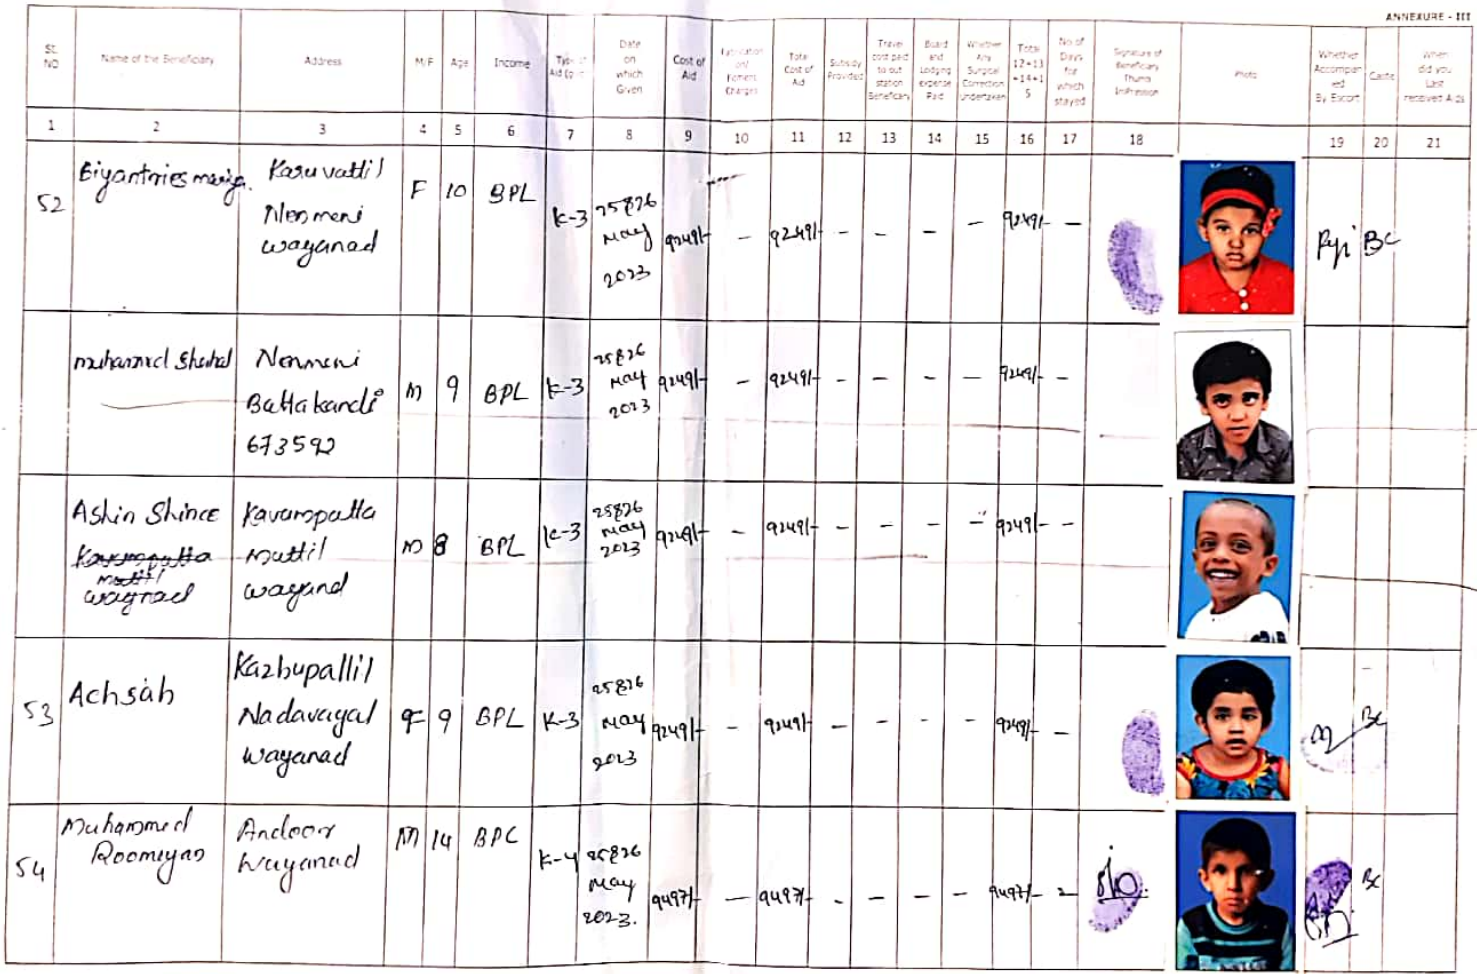 ANNEXURE - III
Sl. NO
Name of the Beneficiary
Address
M/F
Age
Income
Type of Aid
Date on which Given
Cost of Aid
Total Cost of Aid
Subsidy Provided
Travel cost paid to out station Beneficiary
Board and Lodging expense Paid
Whether Any Surgical Correction undertaken
Total 12+13+14+15
No of Days for which stayed
Signature of Beneficiary Thumb Impression
Photo
Whether Accompanied By Escort
Caste
When did you Last received Aids
1 2 3 4 5 6 7 8 9 10 11 12 13 14 15 16 17 18 19 20 21
52
Karuvattil
Nenmeni
Wayanad
F 10 BPL K-3
25&26
May
2023
9249/- - 9249/- - - - - 9249/- -
BC
Muhammed Shahal
Nenmeni
Battakandi
673592
M 9 BPL K-3
25&26
May
2023
9249/- - 9249/- - - - - 9249/- -
Ashin Shince
Kavumpatta
Muttil
Wayand
M 8 BPL K-3
25&26
May
2023
9249/- - 9249/- - - - - 9249/- -
53
Achsah
Kazhupallil
Nadavayal
Wayanad
F 9 BPL K-3
25&26
May
2023
9249/- - 9249/- - - - - 9249/- -
BC
54
Muhammed
Roomiyan
Andoor
Wayanad
M 14 BPL K-4
25&26
May
2023.
9497/- - 9497/- - - - - 9497/- -
BC